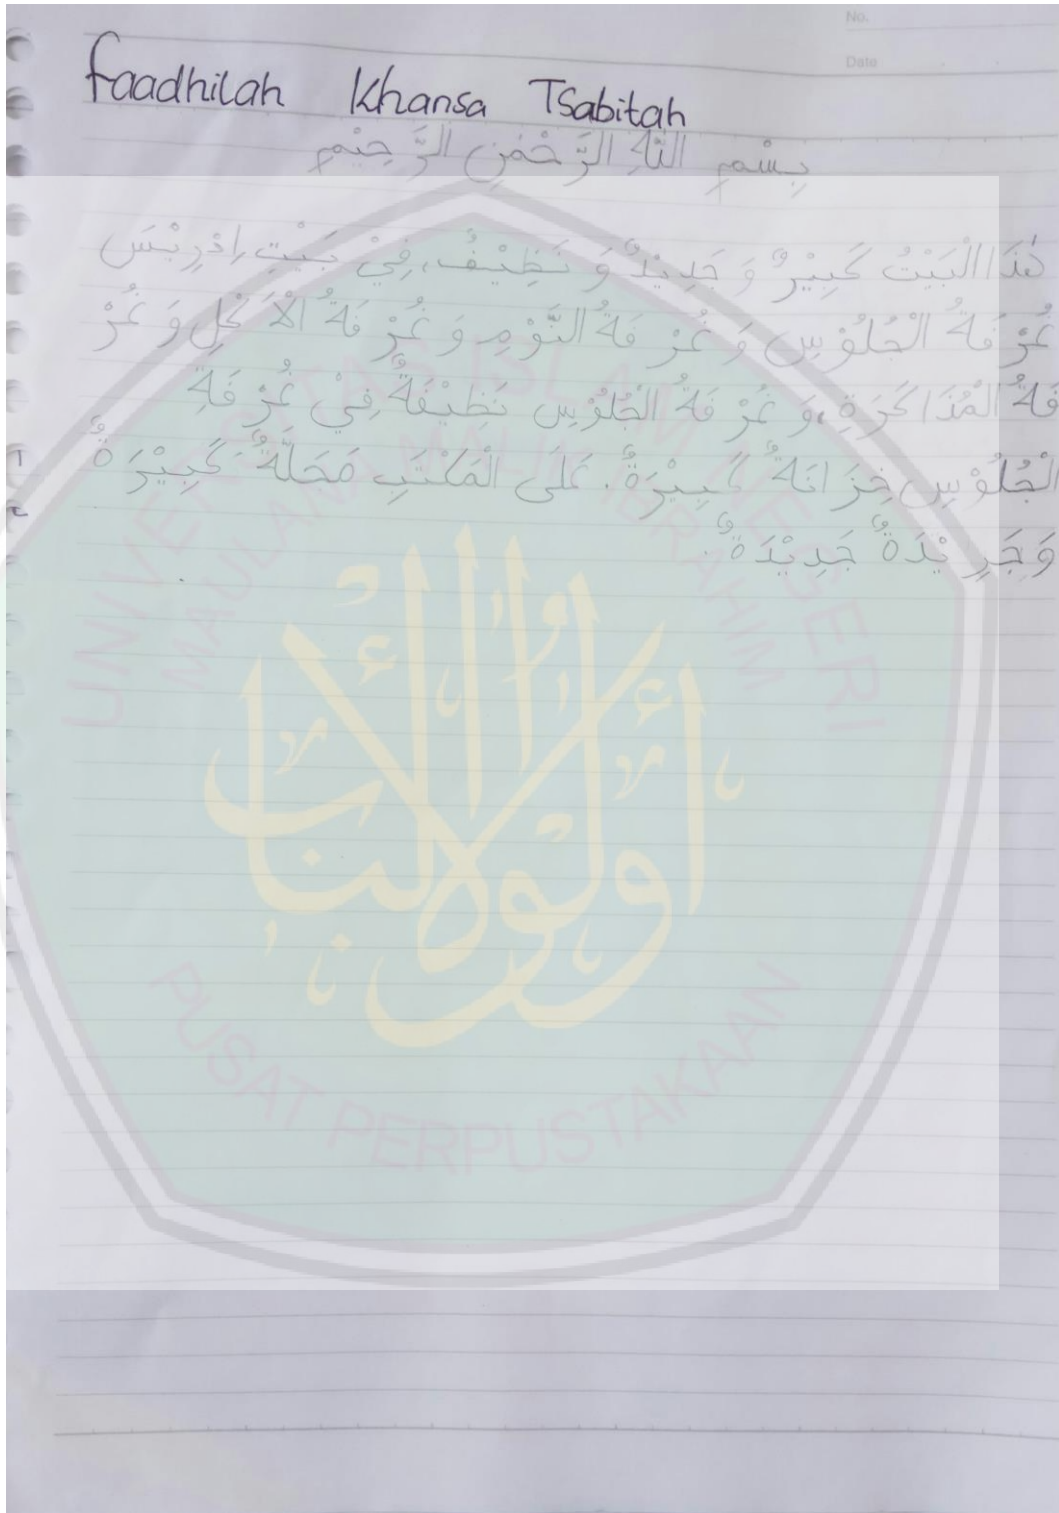 No.
Date
Faadhilah Khansa Tsabitah
بِسْمِ اللّٰهِ الرَّحْمٰنِ الرَّحِيْمِ
هٰذَا الْبَيْتُ كَبِيْرٌ وَ جَدِيْدٌ وَ نَظِيْفٌ، فِيْ بَيْتِ اِدْرِيْسَ
غُرْفَةُ الْجُلُوْسِ وَ غُرْفَةُ النَّوْمِ وَ غُرْفَةُ الْأَكْلِ وَ غُرْ
فَةُ الْمُذَاكَرَةِ، وَ غُرْفَةُ الْجُلُوْسِ نَظِيْفَةٌ فِيْ غُرْفَةِ
الْجُلُوْسِ خِزَانَةٌ كَبِيْرَةٌ. عَلَى الْمَكْتَبِ مَحَلَّةٌ كَبِيْرَةٌ
وَجَرِيْدَةٌ جَدِيْدَةٌ.
UNIVERSITAS ISLAM NEGERI
MAULANA MALIK IBRAHIM
أولو الألباب
PUSAT PERPUSTAKAAN